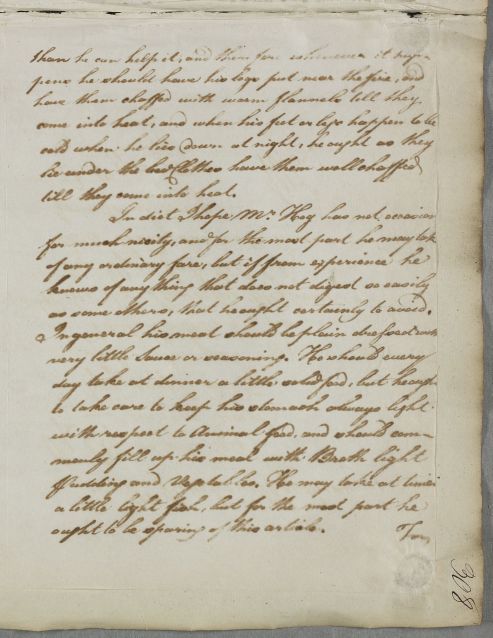 than he can help it, and therefore whenever it hap-
pens he should have his legs put near the fire, and
have them chaffed with warm flannels till they
come into heat, and when his feet or legs happen to be
cold when he lies down at night, he ought as they
lie under the bed Clothes have them well chaffed
till they come into heat.
In diet I hope Mr. Hay has not occasion
for much nicety, and for the most part he may take
of any ordinary fare, but if from experience he
knows of any thing that does not digest so easily
as some others, that he ought certainly to avoid.
In general his meat should be plain dressed with
very little Sauce or seasoning. He should every
day take at dinner a little solid food, but he ought
to take care to keep his stomach always light
with respect to Animal food, and should com-
monly fill up his meal with Broth light
Pudding and Vegetables. He may take at times
a little light fish, but for the most part he
ought to be sparing of this article.
For
806